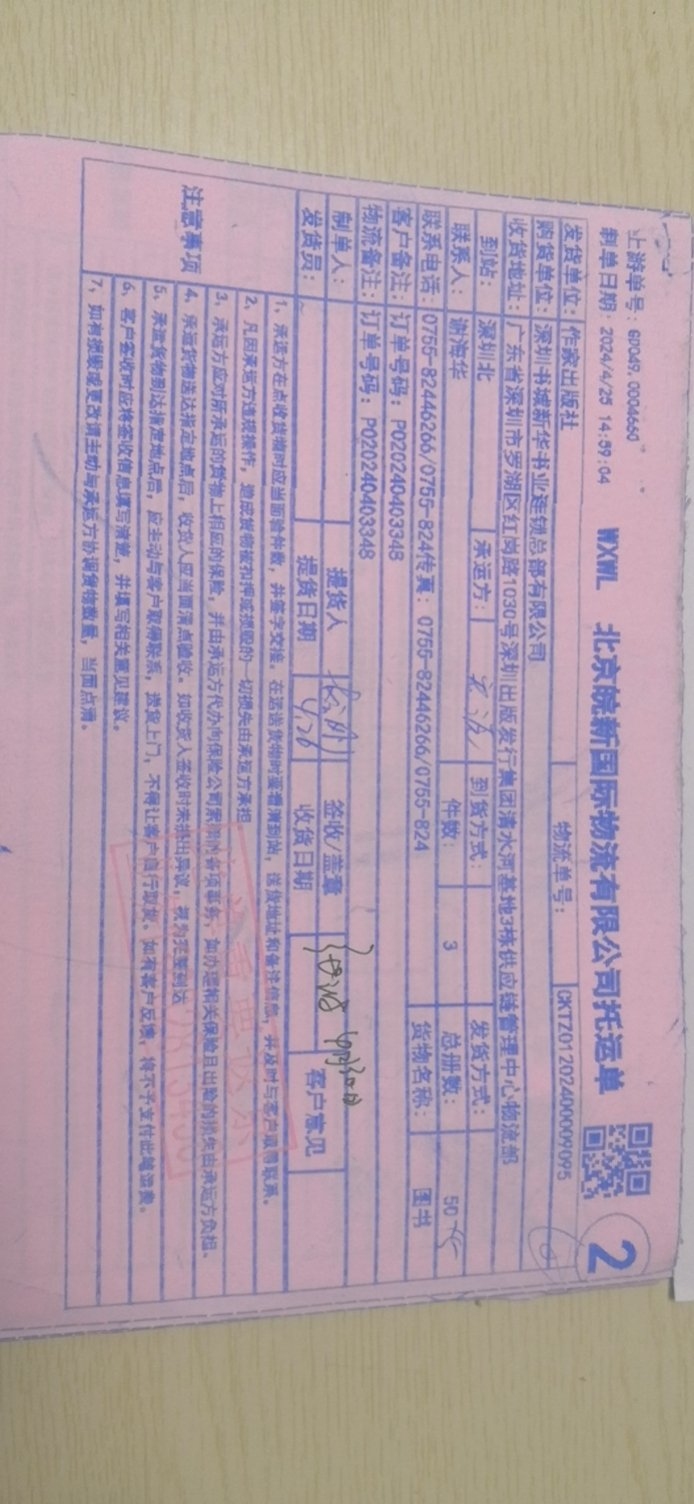 上游单号：GD049.0004660
制单日期：2024/4/25 14:59:04
WXWL 北京皖新国际物流有限公司托运单
2
发货单位：作家出版社 物流单号：CKTZ01202400009095
购货单位：深圳书城新华书业连锁总部有限公司
收货地址：广东省深圳市罗湖区红岗路1030号深圳出版发行集团清水河基地3栋供应链管理中心物流部
到站：深圳北 承运方： 到货方式： 发货方式：
联系人：谢海华 件数：3 总册数：50
联系电话：0755-82446266/0755-824传真：0755-82446266/0755-824 货物名称：图书
客户备注：订单号码：P020240403348
物流备注：订单号码：P020240403348
制单人： 提货人 签收/盖章 客户意见
发货员： 提货日期 4.26 收货日期
注意事项
1、承运方在点收货物时应当面验件数，并签字交接。在运送货物时要看清到站，送货地址和备注信息，并及时与客户取得联系。
2、凡因承运方违规操作，造成货物被扣押或损毁的一切损失由承运方承担
3、承运方应对所承运的货物上相应的保险，并由承运方代办向保险公司索赔的各项事务，如办理相关保险且出险的损失由承运方负担。
4、承运货物送达指定地点后，收货人应当面清点验收。如收货人签收时未提出异议，视为完整到达
5、承运货物到达指定地点后，应主动与客户取得联系，送货上门，不得让客户自行取货。如有客户反馈，将不予支付此笔运费。
6、客户签收时应将签收信息填写清楚，并填写相关意见建议。
7、如有损毁或更改请主动与承运方协调货物数量，当面点清。